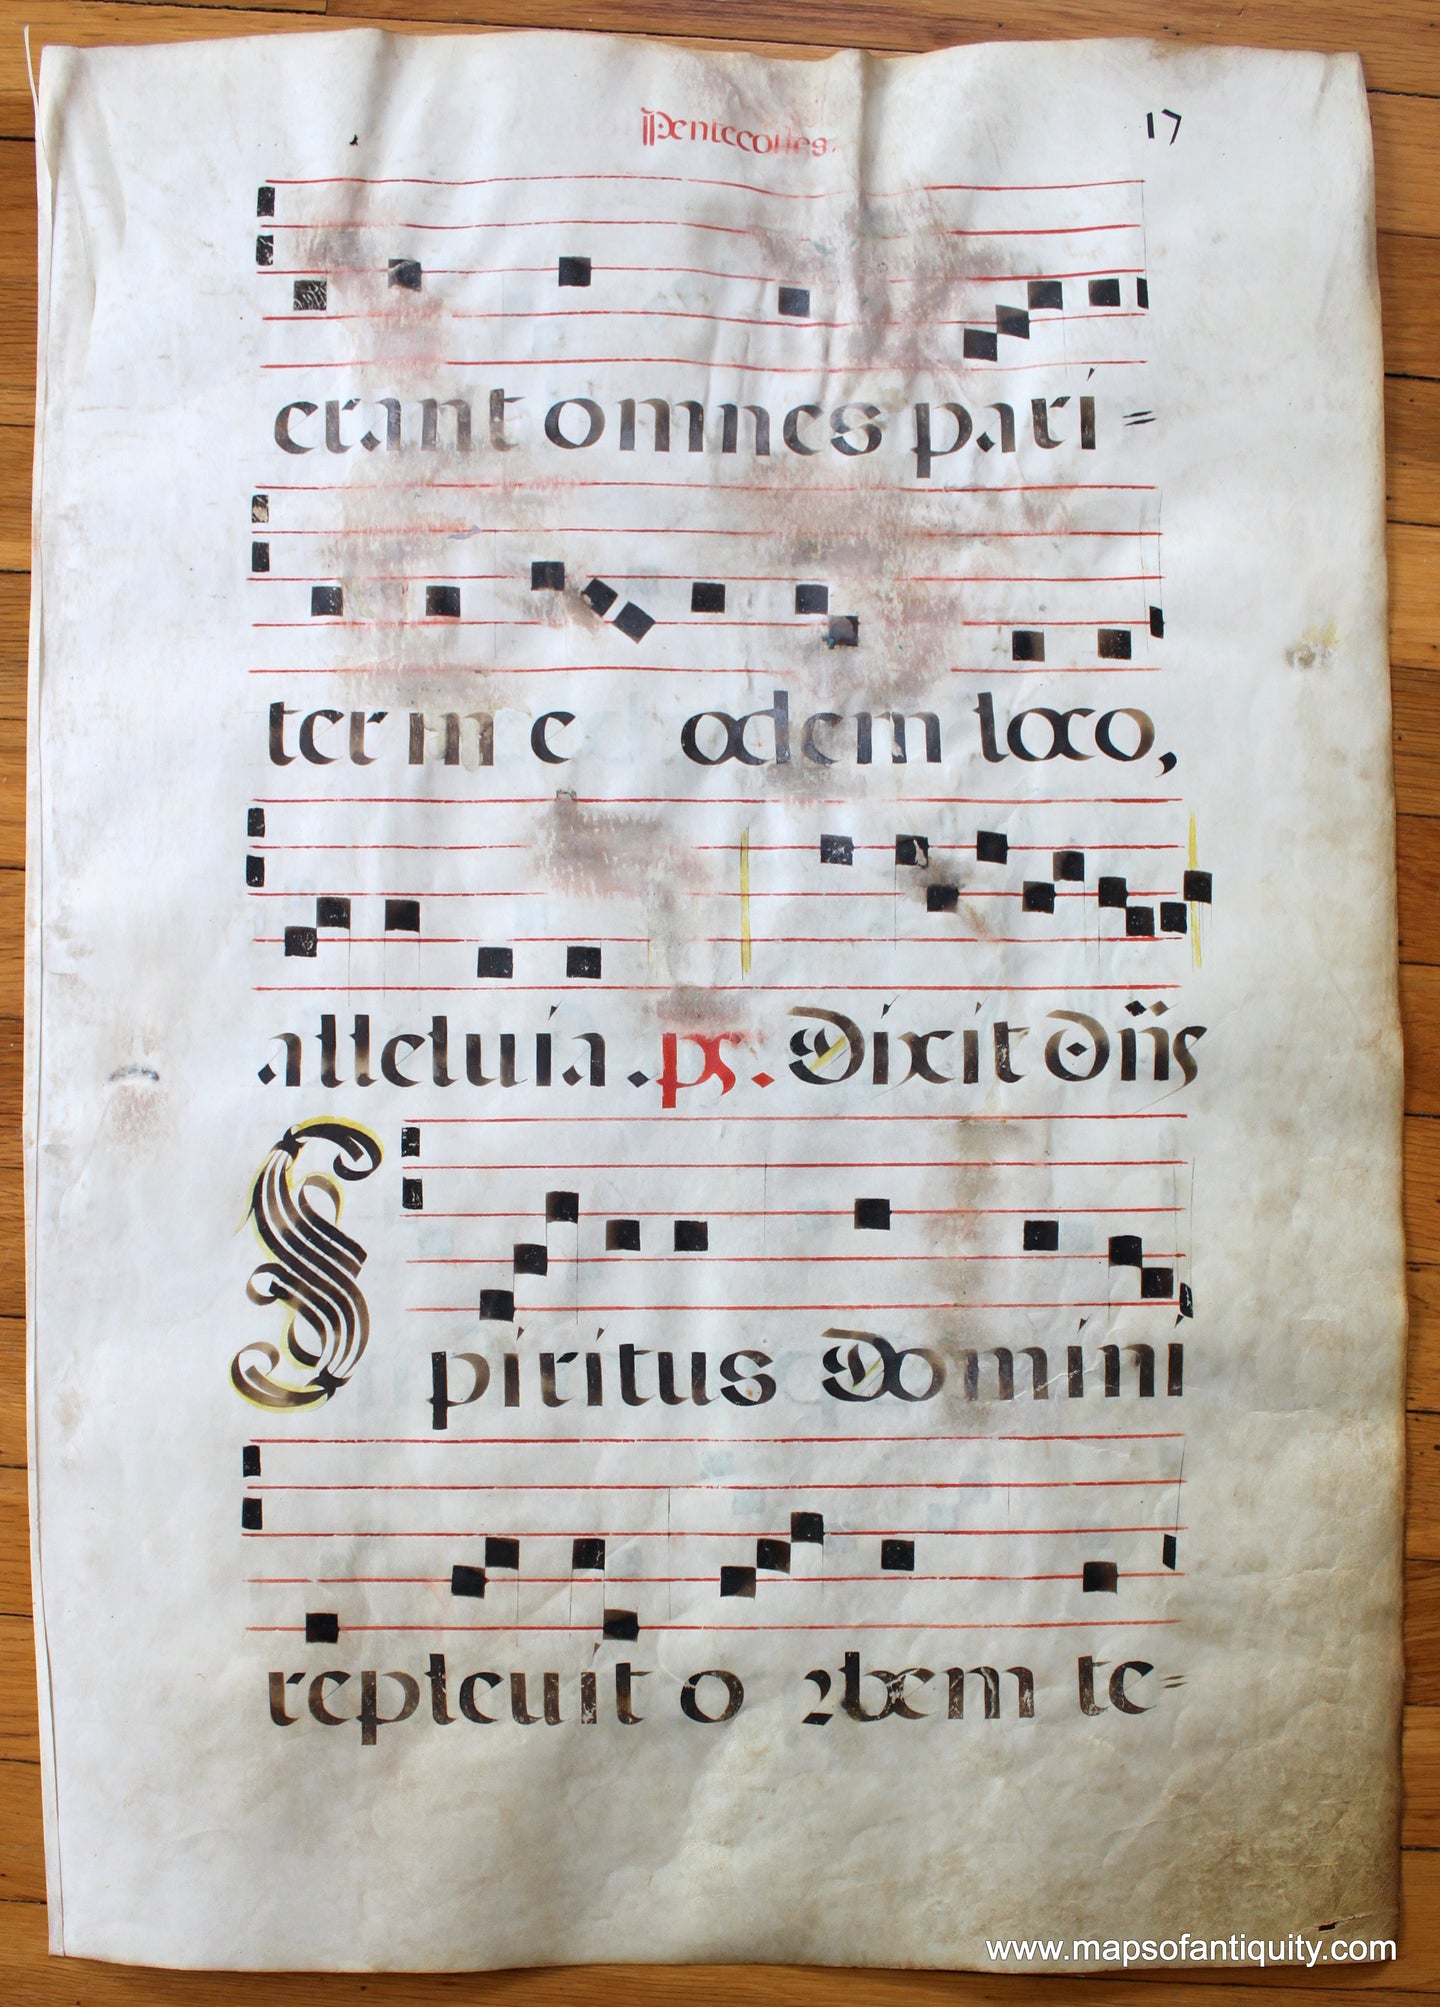 Pentecostes. 17
erant omnes pari=
ter in e odem loco,
alleluia. ps. Dixit Dñs
Spiritus Domini
repleuit o rbem te=
www.mapsofantiquity.com